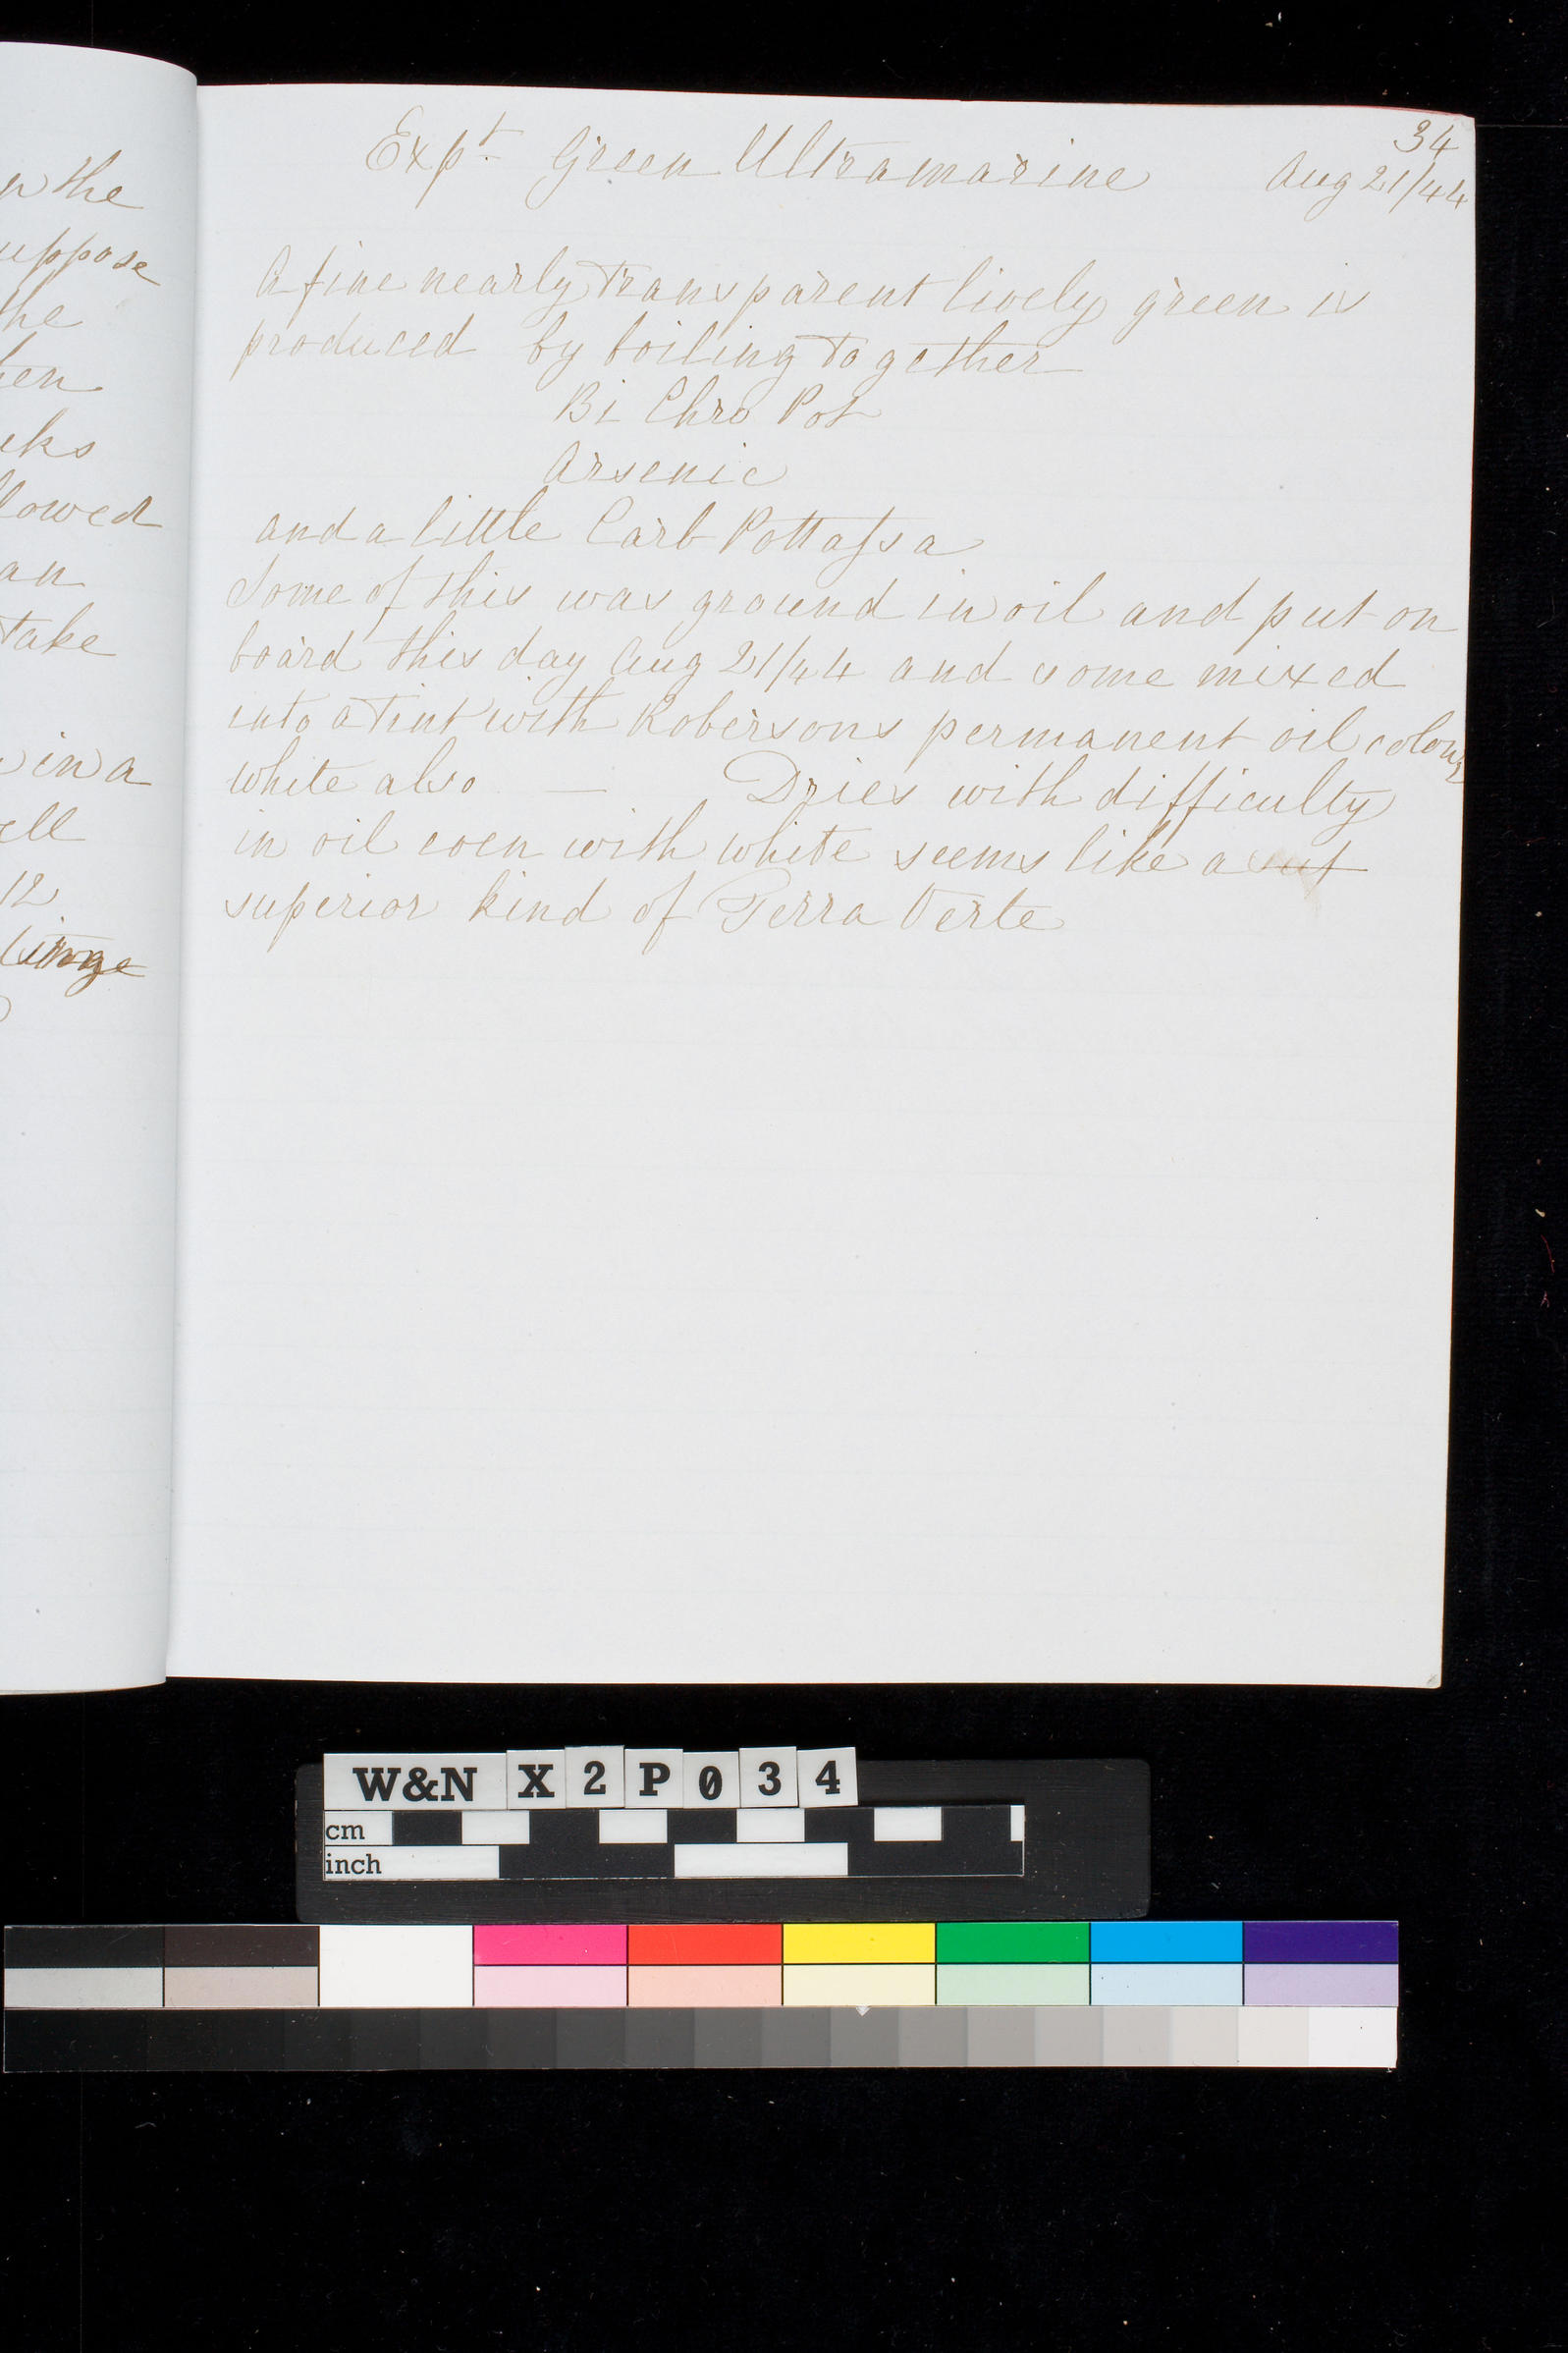 n the
uppose
he
en
eks
llowed
an
take
in a
ell
12
tinge
34
Expt. Green Ultramarine Aug 21/44
A fine nearly transparent lively green is
produced by boiling together
Bi Chro Pot
Arsenic
and a little Carb Pottaſsa
Some of this was ground in oil and put on
board this day Aug 21/44 and some mixed
into a tint with Robersons permanent oil colour
white also — Dries with difficulty
in oil even with white seems like a
superior kind of Terra Verte
W&N X2P034
cm
inch